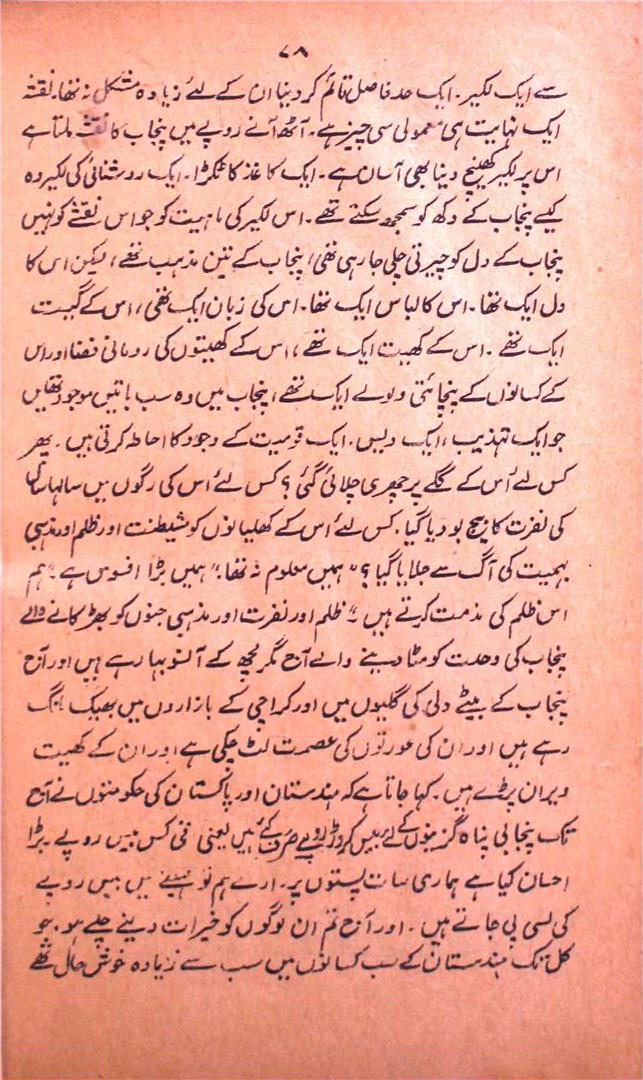 ۷۸
سے ایک لکیر۔ ایک حد فاصل قائم کر دینا ان کے لئے زیادہ مشکل نہ تھا۔ نقشہ
ایک نہایت ہی معمولی سی چیز ہے۔ آٹھ آنے روپے میں پنجاب کا نقشہ ملتا ہے
اس پر لکیر کھینچ دینا بھی آسان ہے۔ ایک کاغذ کا ٹکڑا۔ ایک روشنائی کی لکیر وہ
کیسے پنجاب کے دکھ کو سمجھ سکتے تھے۔ اس لکیر کی ماہیت کو جو اس نقشے کو نہیں
پنجاب کے دل کو چیرتی چلی جا رہی تھی، پنجاب کے تین مذہب تھے، لیکن اس کا
دل ایک تھا۔ اس کا لباس ایک تھا۔ اس کی زبان ایک تھی، اس کے گیت
ایک تھے۔ اس کے کھیت ایک تھے، اس کے کھیتوں کی رومانی فضا اور اس
کے کسانوں کے پنچائتی ولولے ایک تھے، پنجاب میں وہ سب باتیں موجود تھیں
جو ایک تہذیب، ایک دیس، ایک قومیت کے وجود کا احاطہ کرتی ہیں۔ پھر
کس لئے اُس کے گلے پر چھری چلائی گئی؟ کس لئے اس کی رگوں میں سالہا سال
کی نفرت کا بیج بو دیا گیا۔ کس لئے اس کے کھلیانوں کو شیطنت اور ظلم اور مذہبی
بہمیت کی آگ سے جلایا گیا؟ "ہمیں معلوم نہ تھا۔" ہمیں بڑا افسوس ہے۔ "ہم
اس ظلم کی مذمت کرتے ہیں" ظلم اور نفرت اور مذہبی جنوں کو بھڑکانے والے
پنجاب کی وحدت کو مٹا دینے والے آج مگرمچھ کے آنسو بہا رہے ہیں اور آج
پنجاب کے بیٹے دلی کی گلیوں میں اور کراچی کے بازاروں میں بھیک مانگ
رہے ہیں اور ان کی عورتوں کی عصمت لٹ چکی ہے اور ان کے کھیت
ویران پڑے ہیں۔ کہا جاتا ہے کہ ہندستان اور پاکستان کی حکومتوں نے آج
تک پنجابی پناہ گزینوں کے لئے بیس کروڑ روپے صرف کئے ہیں یعنی فی کس بیس روپے۔ بڑا
احسان کیا ہے ہماری سات پشتوں پر۔ ارے ہم تو مہینے میں بیس روپے
کی لسی پی جاتے ہیں۔ اور آج تم ان لوگوں کو خیرات دینے چلے ہو۔ جو
کل تک ہندستان کے سب کسانوں میں سب سے زیادہ خوش حال تھے